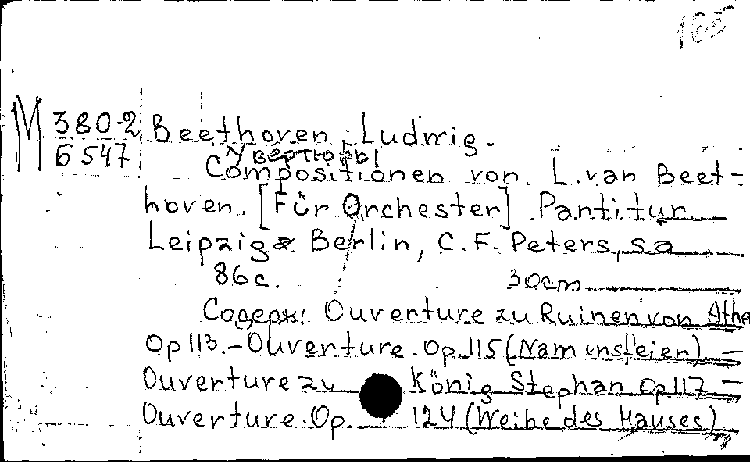 105
М 380-2
Б 547
Beethoven, Ludwig.
Увертюры
Compositionen von L. van Beet-
hoven. [Für Orchester]. Partitur
Leipzig & Berlin, C. F. Peters, s a
86 с. 30 cm
Содерж: Ouverture zu Ruinen von Athe
Op 113. – Ouverture. Op. 115 (Namensfeier) –
Ouverture zu König Stephan Op 117 –
Ouverture. Op. 124 (Weihe des Hauses)